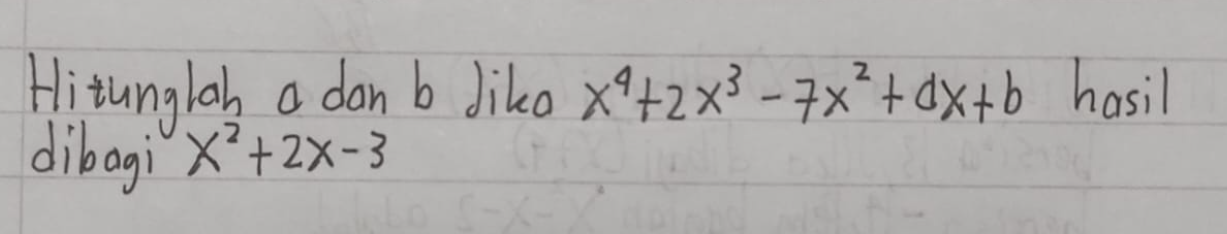 Hitunglah a dan b Jika x⁴+2x³-7x²+ax+b hasil
dibagi x²+2x-3